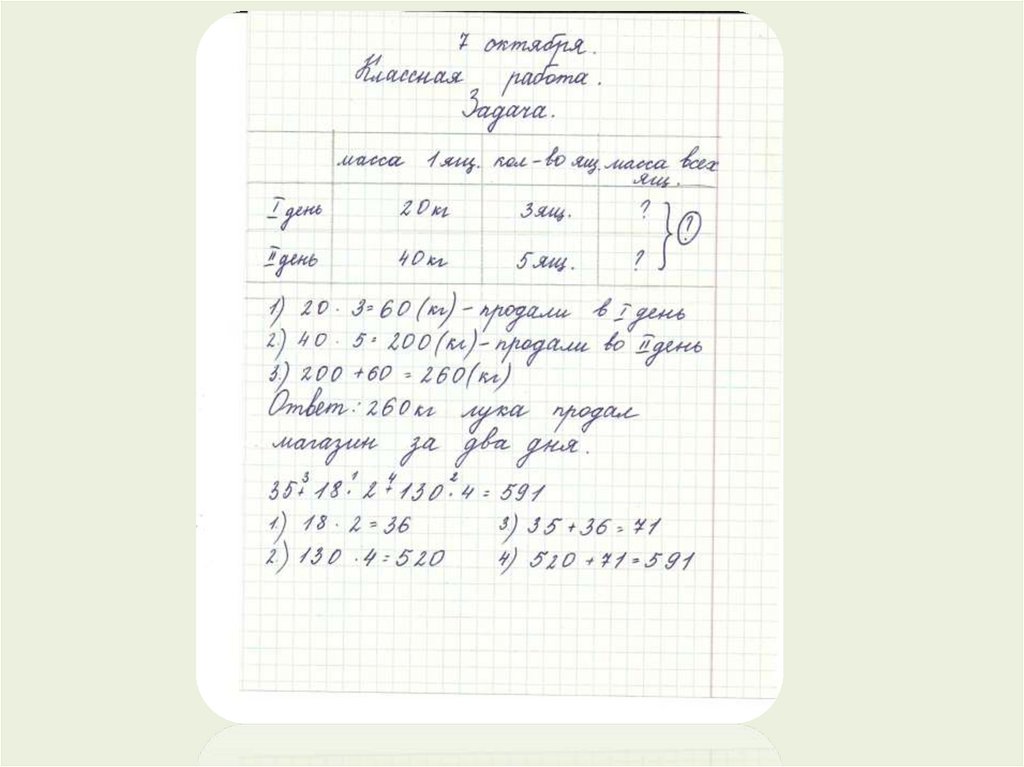 7 октября.
Классная работа.
Задача.
масса 1 ящ. кол-во ящ. масса всех ящ.
I день 20 кг 3 ящ. ?
II день 40 кг 5 ящ. ?
?
1) 20 · 3 = 60 (кг) - продали в I день
2.) 40 · 5 = 200 (кг) - продали во II день
3.) 200 + 60 = 260 (кг)
Ответ: 260 кг лука продал
магазин за два дня.
3 1 4 2
35 + 18 · 2 + 130 · 4 = 591
1.) 18 · 2 = 36 3) 35 + 36 = 71
2.) 130 · 4 = 520 4) 520 + 71 = 591